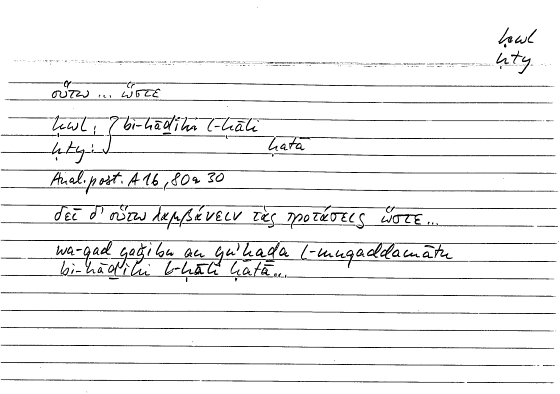 ḥwl
ḥty
οὕτω ... ὥστε
ḥwl : } bi-hāḏihi l-ḥāli
ḥty : ḥatā
Anal. post. A 16, 80a 30
δεῖ δ' οὕτω λαμβάνειν τὰς προτάσεις ὥστε...
wa-qad yaǧibu an yu'ḫaḏa l-muqaddamātu
bi-hāḏihi l-ḥāli ḥatā...